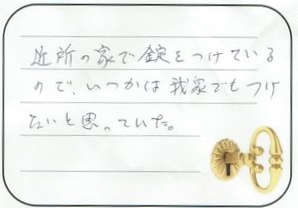 近所の家で錠をつけている
ので、いつかは我家でもつけ
たいと思っていた。